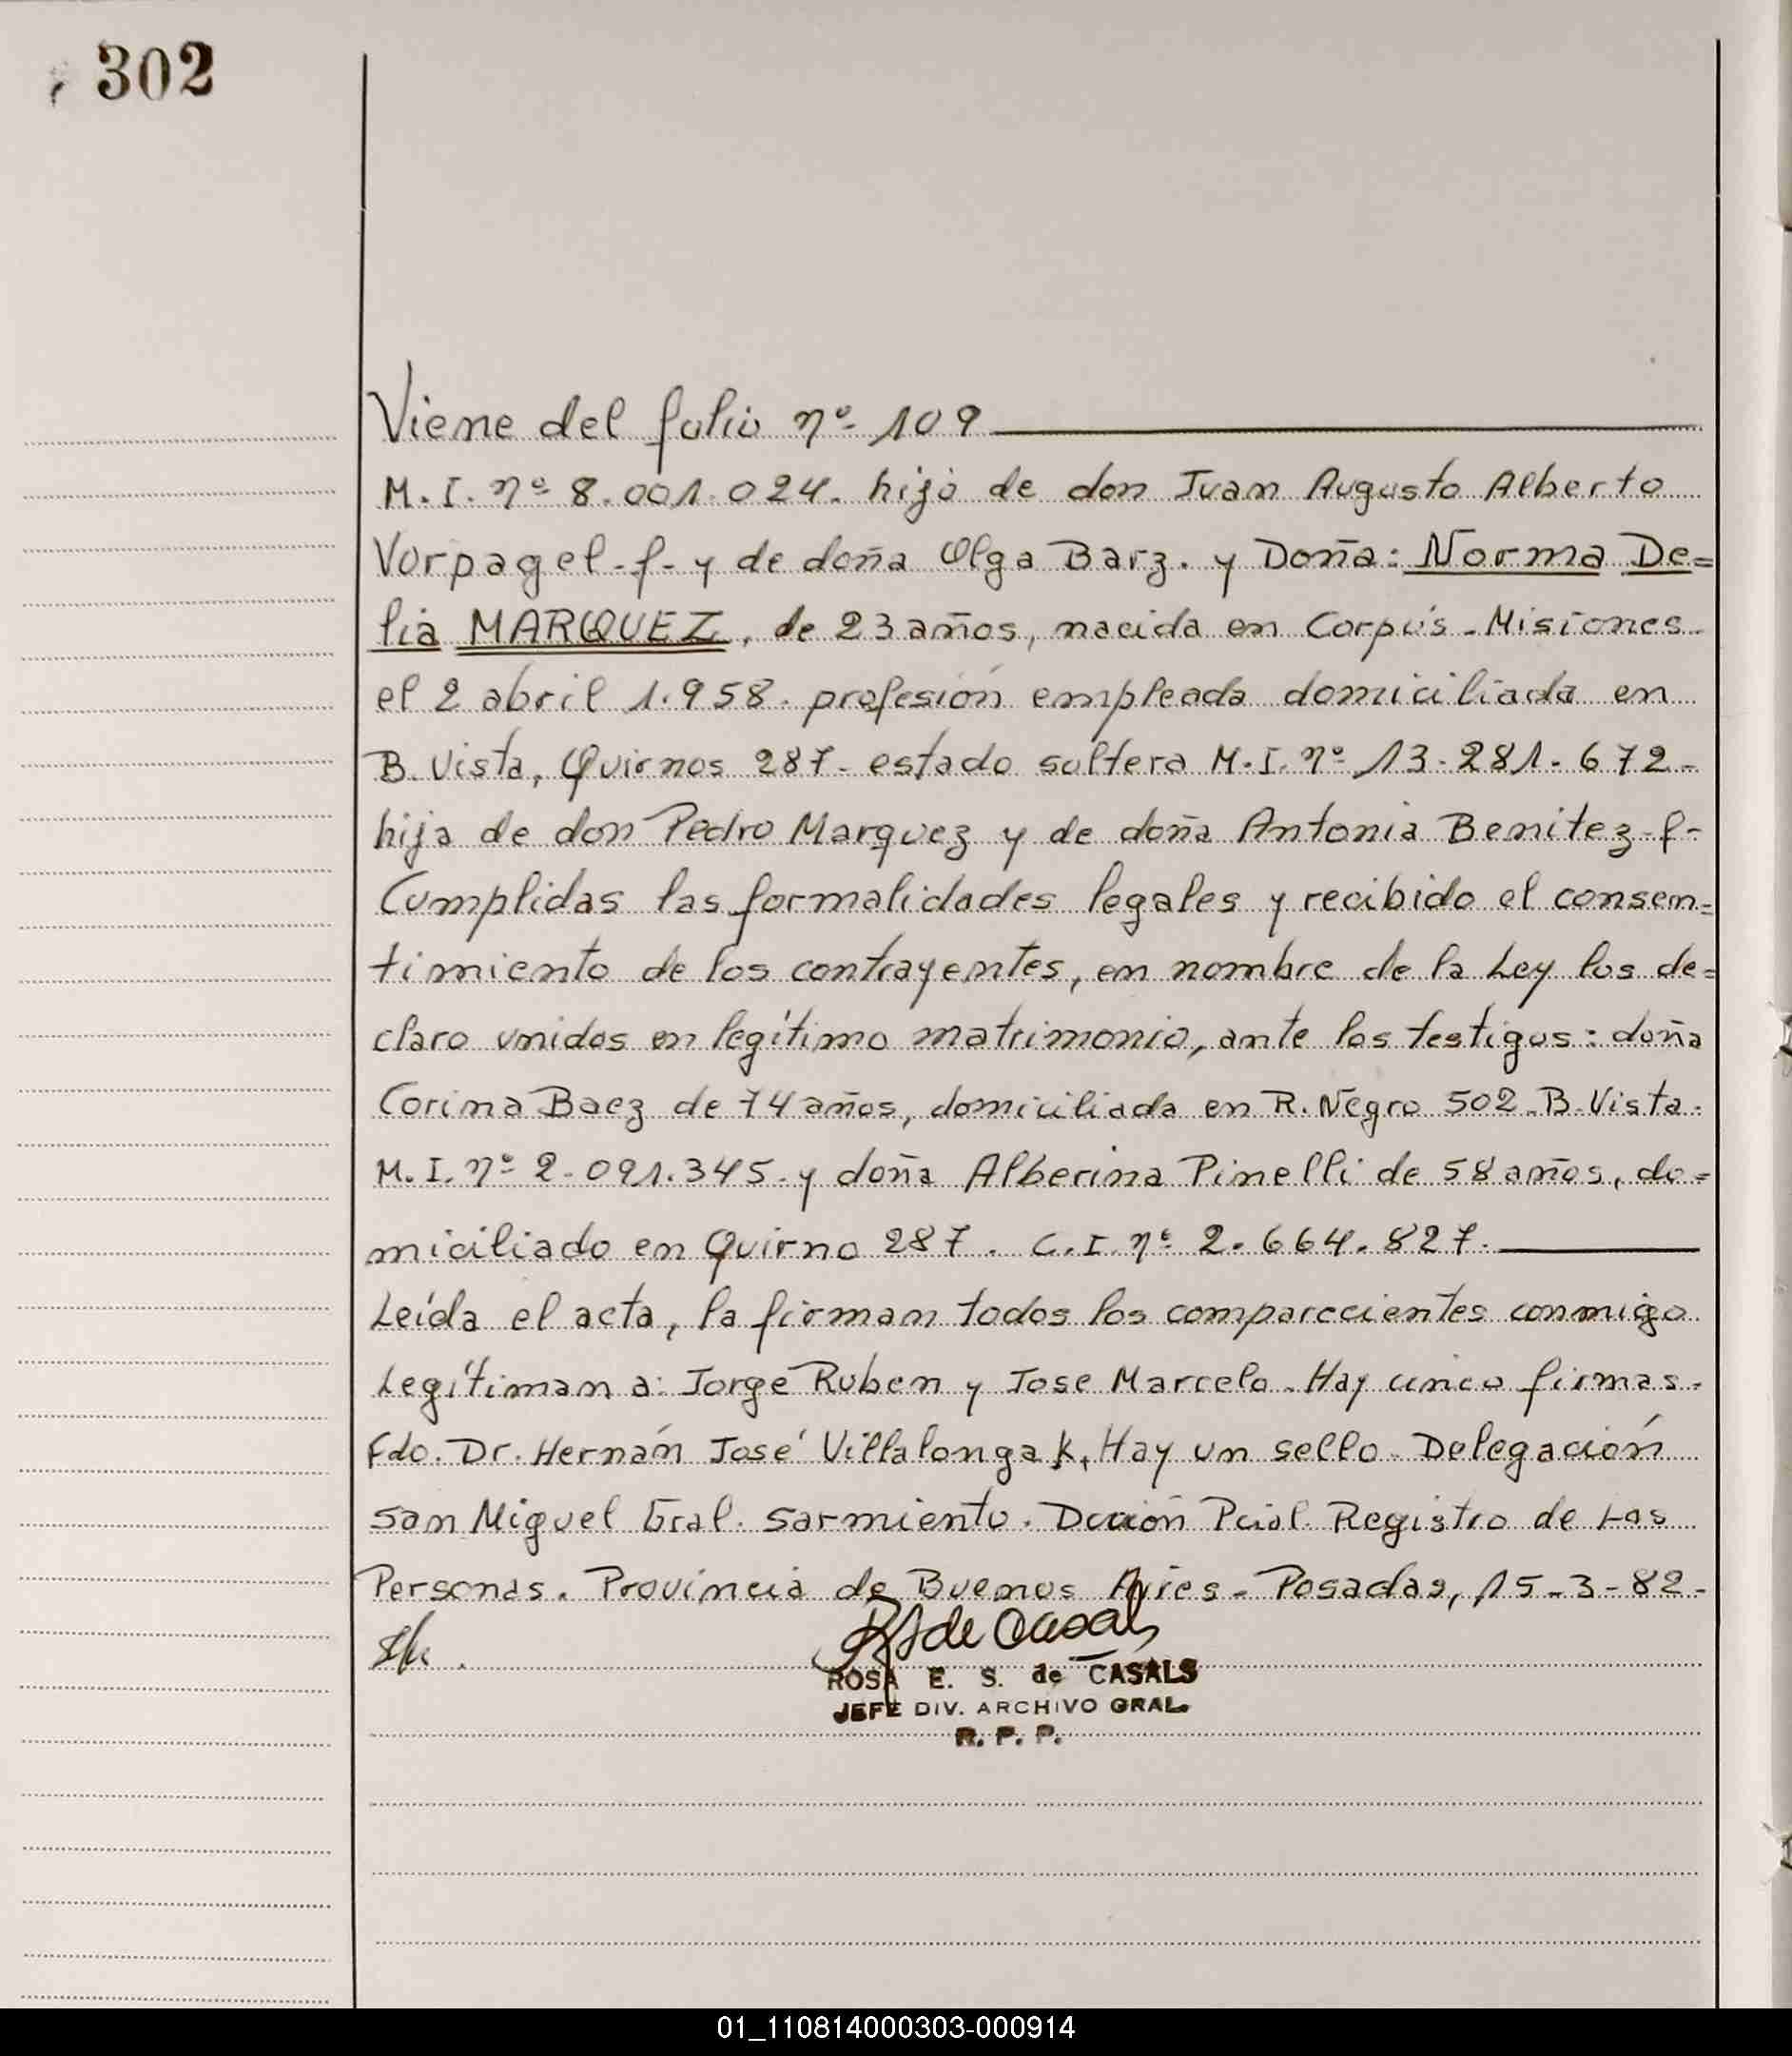 302
Viene del folio nº 109
M. I. nº 8.001.024. hijo de don Juan Augusto Alberto
Vorpagel -f- y de doña Olga Barz. y Doña: Norma De=
lia MARQUEZ, de 23 años, nacida en Corpús - Misiones.
el 2 abril 1.958. profesión empleada domiciliada en
B. Vista, Quirnos 287 - estado soltera M.I. nº 13.281.672 -
hija de don Pedro Marquez y de doña Antonia Benitez - f -
Cumplidas las formalidades legales y recibido el consen=
timiento de los contrayentes, en nombre de la Ley los de=
claro unidos en legítimo matrimonio, ante los testigos: doña
Corina Baez de 74 años, domiciliada en R. Negro 502 - B. Vista.
M. I. nº 2.091.345 - y doña Alberina Pinelli de 58 años, do=
miciliado en Quirno 287. C. I. nº 2.664.827.
Leída el acta, la firman todos los comparecientes conmigo
Legítiman a: Jorge Ruben y Jose Marcelo. Hay cinco firmas.
Fdo. Dr. Hernán José Villalonga K. Hay un sello - Delegación
San Miguel Gral. Sarmiento. Dcción Pcial. Registro de Las
Personas. Provincia de Buenos Aires - Posadas, 15-3-82 -
R S de Casals
ROSA E. S. de CASALS
JEFE DIV. ARCHIVO GRAL.
R. P. P.
01_110814000303-000914